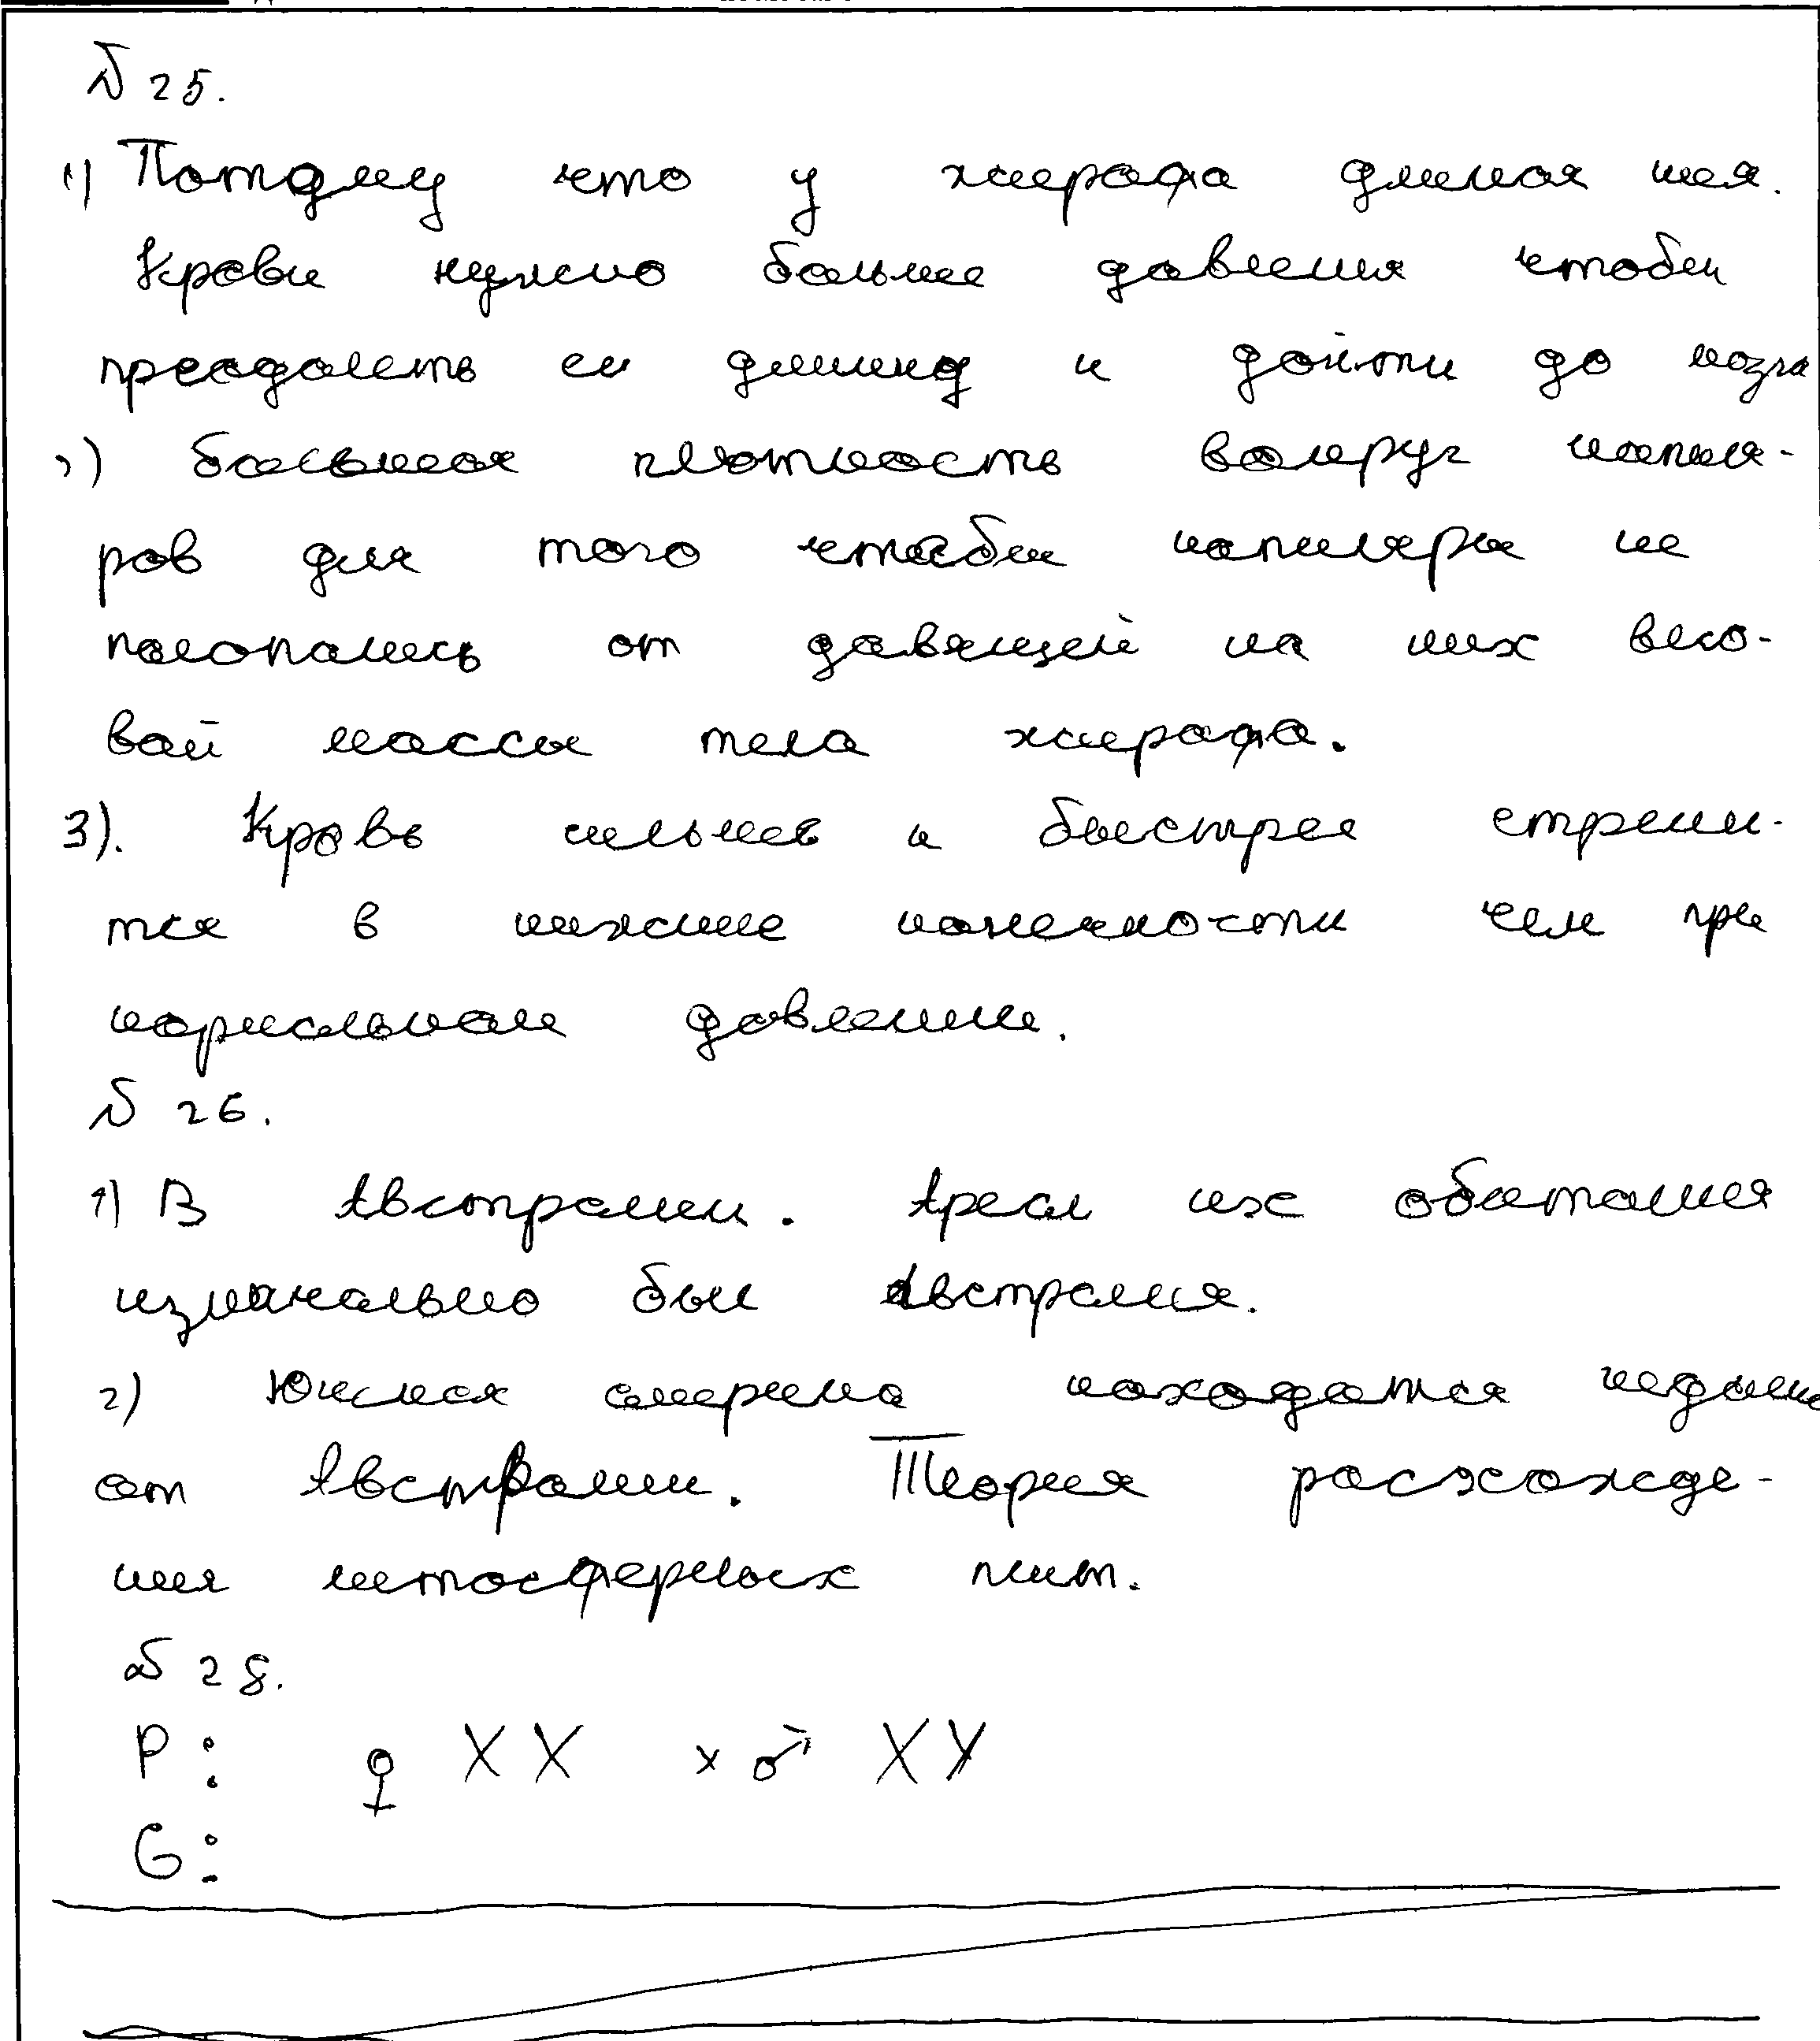 № 25.
1) Потому что у жирафа длиная шея.
Крови нужно больше давления чтобы
преодолеть ей длину и дойти до мозга
2) большая плотность вокруг капиля-
ров для того чтобы капиляры не
полопались от давящей на них весо-
вой массы тела жирафа.
3). Кровь сильнее и быстрее стреми-
тся в нижние конечности чем при
нормальном давлении.
№ 26.
1) В Австралии. Ареал их обитания
изначально был Австралия.
2) Южная америка находится недалеко
от Австралии. Теория расхожде-
ния литосферных плит.
№ 28.
P: ♀ XX x ♂ XY
G: